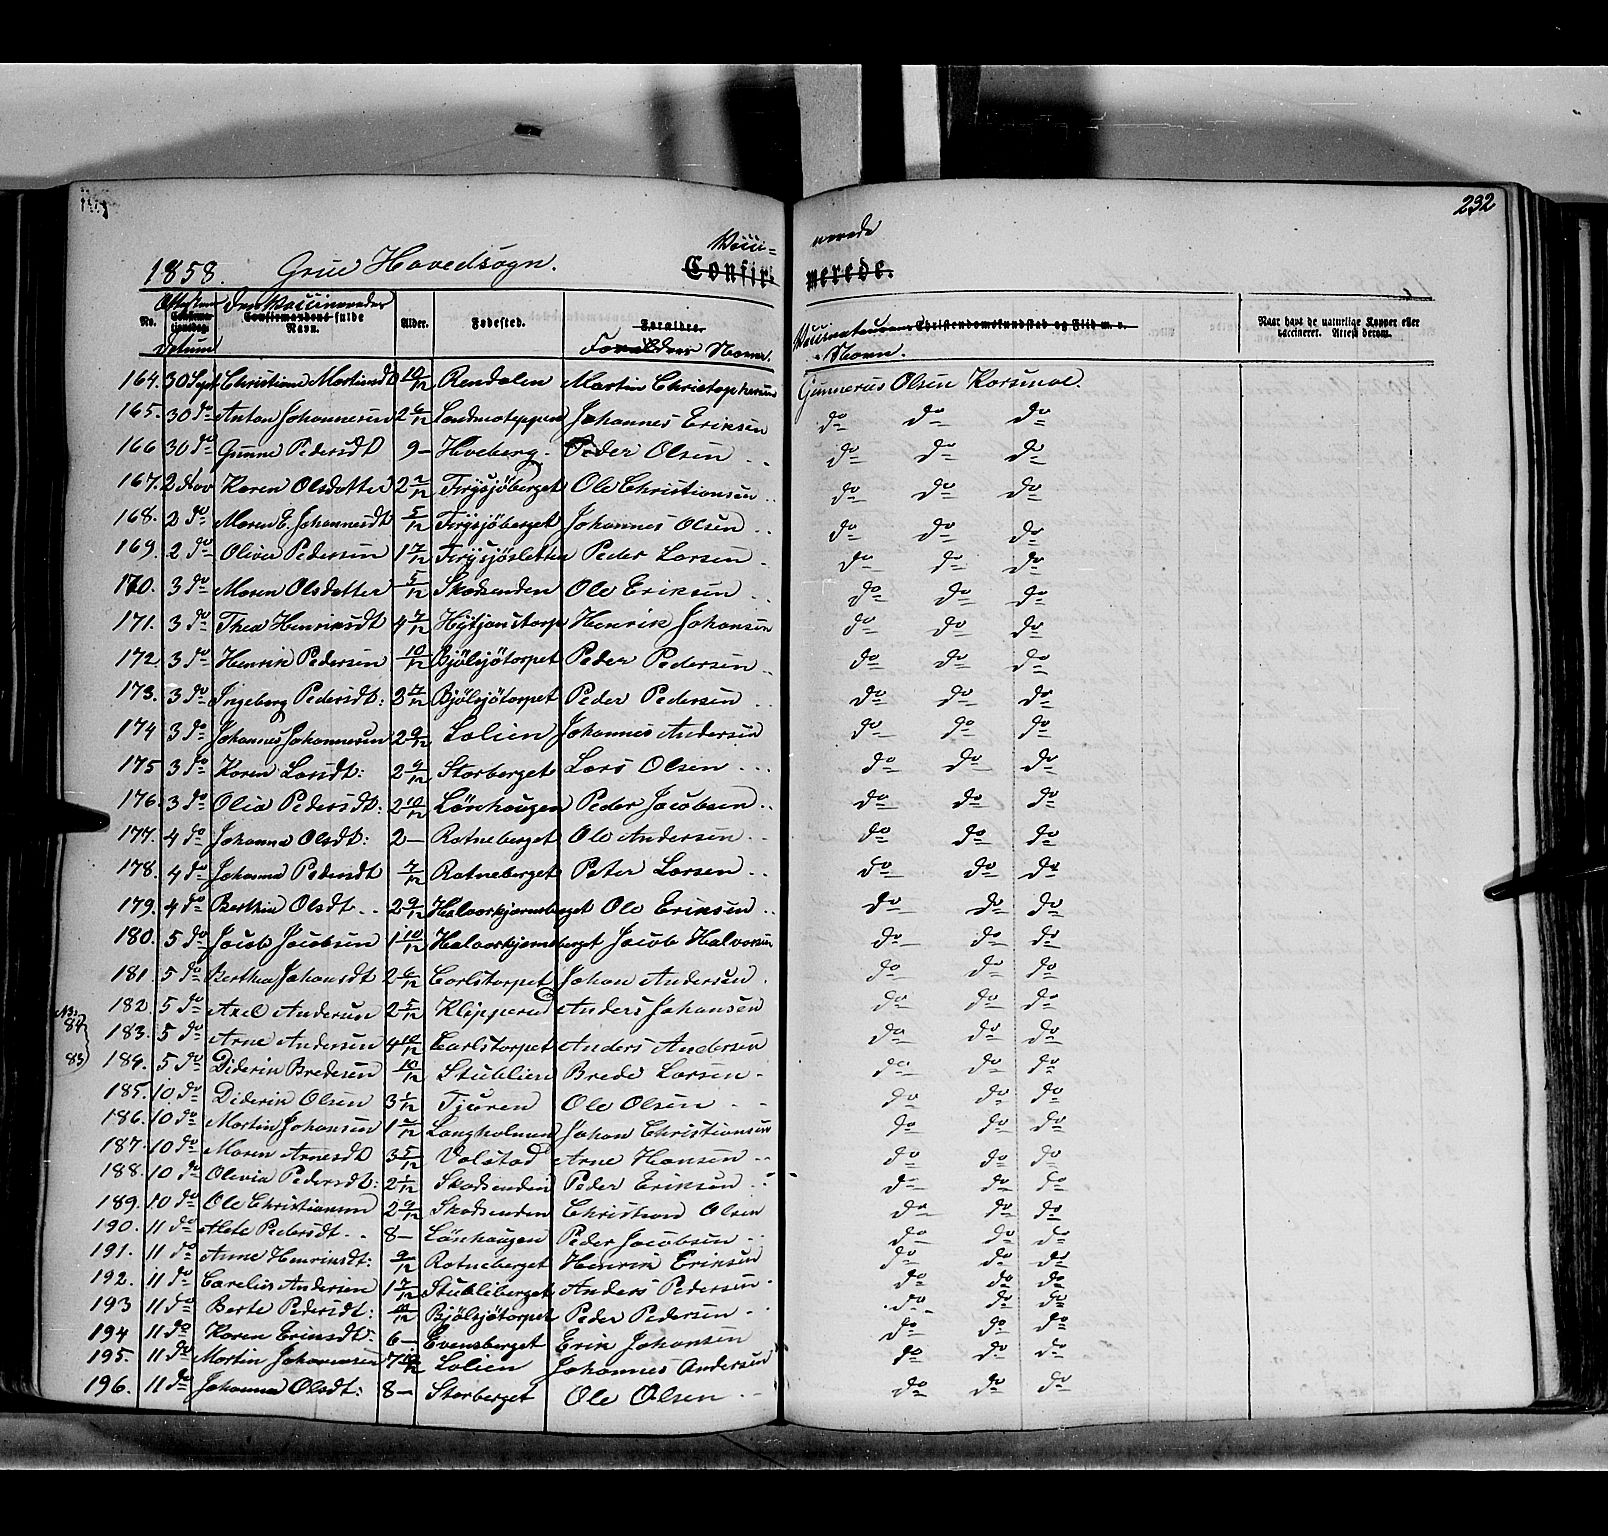 232
Vacci= nerede
1858. Grue Hovedsogn. Confir= merede.
No. Attestens Datum Den Vaccineredes Confirmandens fulde Navn. Alder. Fødested. Forældre. Forældres Navne. Vaccinateurens Navn. Christendomskundskab og Flid m. v. Naar havt de naturlige Kopper eller vaccineret. Attest derom.
164. 30 Sept Christiane Martinsdt 10/12 Rendalen Martin Christophersen Gunnerus Olsen Korsmoe.
165. 30 do Anton Johannesen 2 6/12 Johannes Eriksen do do do
166 30 do Gunne Pedersdt 9 – Hveberg. Peder Olsen do do do
167. 2 Nov Karen Olsdatter 2 2/12 Frysjöberget Ole Christiansen do do do
168. 2 do Maren E. Johannesdt 5/12 Frysjöberget Johannes Olsen do do do
169. 2 do Oliver Pedersen 1 7/12 Frysjösletten Peder Larsen do do do
170. 3 do Maren Olsdatter 5/12 Skadsenden Ole Eriksen do do do
171. 3 do Thea Henriksdt 4 7/12 Henrik Johansen do do do
172. 3 do Henrik Pedersen 10/12 Bjölsjötorpet Peder Pedersen do do do
173. 3 do Ingeborg Pedersdt: 2 7/12 Bjölsjötorpet Peder Pedersen do do do
174 3 do Johannes Johannesen 2 9/12 Lolien Johannes Andersen do do do
175 3 do Karen Larsdt: 2 9/12 Storberget Lars Olsen do do do
176. 3 do Olia Pedersdt: 2 10/12 Lönhaugen Peder Jacobsen do do do
177. 4 do Johanna Olsdt: 2 – Rotneberget Ole Andersen do do do
178. 4 do Johanna Pedersdt 7/12 Rotneberget Peter Larsen do do do
179. 4 do Berthin Olsdt 2 9/12 Halvorkjernsberget Ole Eriksen do do do
180. 5 do Jacob Jacobsen 1 10/12 Halvorkjernsberget Jacob Halvorsen do do do
181 5 do Berthea Johansdt 2 6/12 Carlstorpet Johan Andersen do do do
182. 5 do Axel Andersen 2 5/12 Klipperud Anders Johansen do do do
84
183. 5 do Arne Andersen 4 10/12 Carlstorpet Anders Andersen do do do
83
184. 5 do Diderik Bredesen 10/12 Stublien Brede Larsen do do do
185. 10 do Diderik Olsen 3 1/12 Tjuren Ole Olsen do do do
186. 10 do Martin Johansen Langholmen Johan Christiansen do do do
187. 10 do Maren Arnesdt 3 5/12 Volstad Arne Hansen do do do
188. 10 do Olivia Pedersdt: 2 1/12 Skadsenden Peder Eriksen do do do
189. 10 do Ole Christiansen 2 9/12 Skadsenden Christian Olsen do do do
190. 11 do Alete Pedersdt 8 – Lönhaugen Peder Jacobsen do do do
191. 11 do Anne Henriksdt: 9/12 Rotneberget Henrik Eriksen do do do
192. 11 do Carelius Andersen 1 7/12 Stubliberget Anders Pedersen do do do
193 11 do Berte Pedersdt: Bjölsjötorpet Peder Pedersen do do do
194 11 do Karen Eriksdt 6 – Evensberget Erik Johansen do do do
195. 11 do Martin Johannesen 7 Lolien Johannes Andersen do do do
196. 11 do Johanna Olsdt: 8 – Storberget Ole Olsen do do do